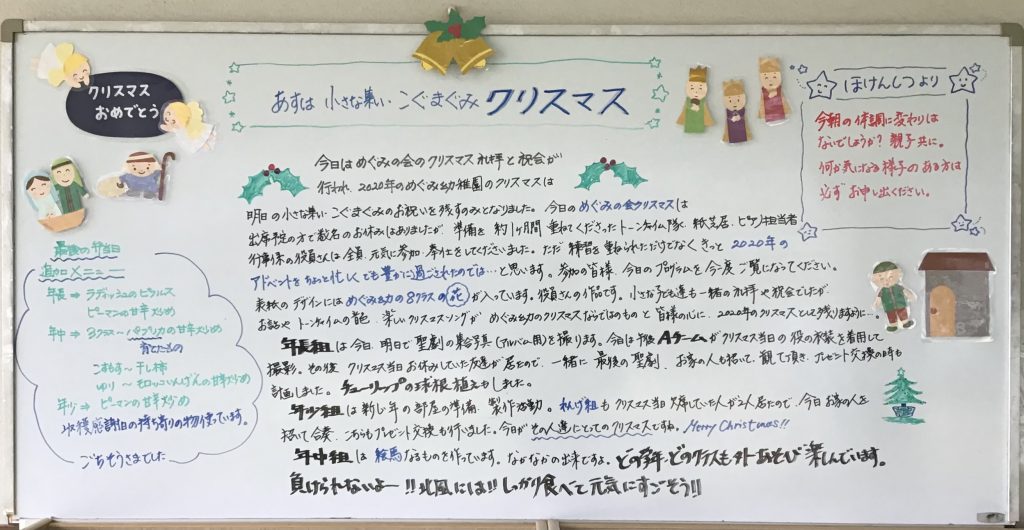 クリスマス
おめでとう
あすは 小さな集い・こぐまぐみ クリスマス
ほけんしつより
今朝の体調に変わりは
ないでしょうか? 親子共に。
何か気になる様子のある方は
必ず お申し出ください。
今日はめぐみの会のクリスマス礼拝と祝会が
行われ、2020年のめぐみ幼稚園のクリスマスは
明日の小さな集い・こぐまぐみのお祝いを残すのみとなりました。今日のめぐみの会クリスマスは
出席予定の方で数名のお休みはありましたが、準備を約1ヶ月間重ねてくださったトーンチャイム隊、紙芝居、ピアノ担当者
行事係の役員さんは全員、元気に参加・奉仕をしてくださいました。ただ練習を重ねられただけでなく きっと 2020年の
アドベントをちょっと忙しく、でも豊かに過ごされたのでは…と思います。参加の皆様、今日のプログラムを今度ご覧になってください。
表紙のデザインにはめぐみ幼の8クラスの花が入っています。役員さんの作品です。小さな子も達も一緒の礼拝や祝会でしたが、
お話や トーンチャイムの音色、楽しいクリスマスソングが めぐみ幼のクリスマスならではのものと 皆様の心に、2020年のクリスマスとして残りますように…。
年長組は今日、明日で聖劇の集合写真(アルバム用)を撮ります。今日は Aチームがクリスマス当日の役の衣装を着用して
撮影。その後 クリスマス当日お休みしていた友達が居たので、一緒に 最後の聖劇、お家の人も招いて、観て頂き、プレゼント交換の時も
計画しました。チューリップの球根植えもしました。
年少組は新しい年の部屋の準備、製作活動。れんげ組も クリスマス当日 欠席していた人が2人居たので、今日お家の人を
招いて合奏、こちらもプレゼント交換も行いました。今日がその人達にとってのクリスマスですね。Merry Christmas!!
年中組は 絵馬なるものを作っています。なかなかの出来ですよ。どの学年、どのクラスも外あそび楽しんでいます。
負けられないよー!!北風には!!しっかり食べて元気にすごそう!!
最後の弁当日
追加メニュー
年長⇒ ラディッシュのピクルス
ピーマンの甘辛炒め
年中⇒ 3クラス〜パプリカの甘辛炒め
育てたもの
こすもす〜干し柿
ゆり〜モロッコいんげんの甘辛炒め
年少⇒ ピーマンの甘辛炒め
収穫感謝日の持ち寄りの物を使っています。
ごちそうさまでした